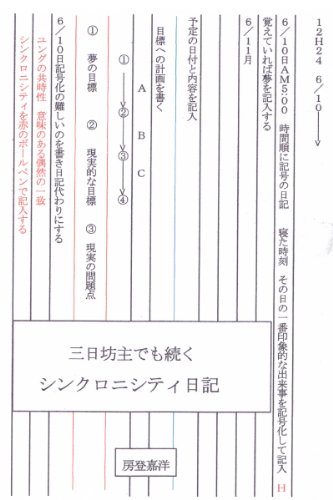 12H24 6/10→
6/10日AM5:00 時間順に記号の日記 寝た時刻 その日の一番印象的な出来事を記号化して記入 H
覚えていれば夢を記入する
6/11月
予定の日付と内容を記入
目標への計画を書く
A B C
①→②→③→④
① 夢の目標 ② 現実的な目標 ③ 現実の問題点
6/10日記号化の難しいのを書き日記代わりにする
ユングの共時性 意味のある偶然の一致
シンクロニシティを赤のボールペンで記入する
三日坊主でも続く
シンクロニシティ日記
房登嘉洋